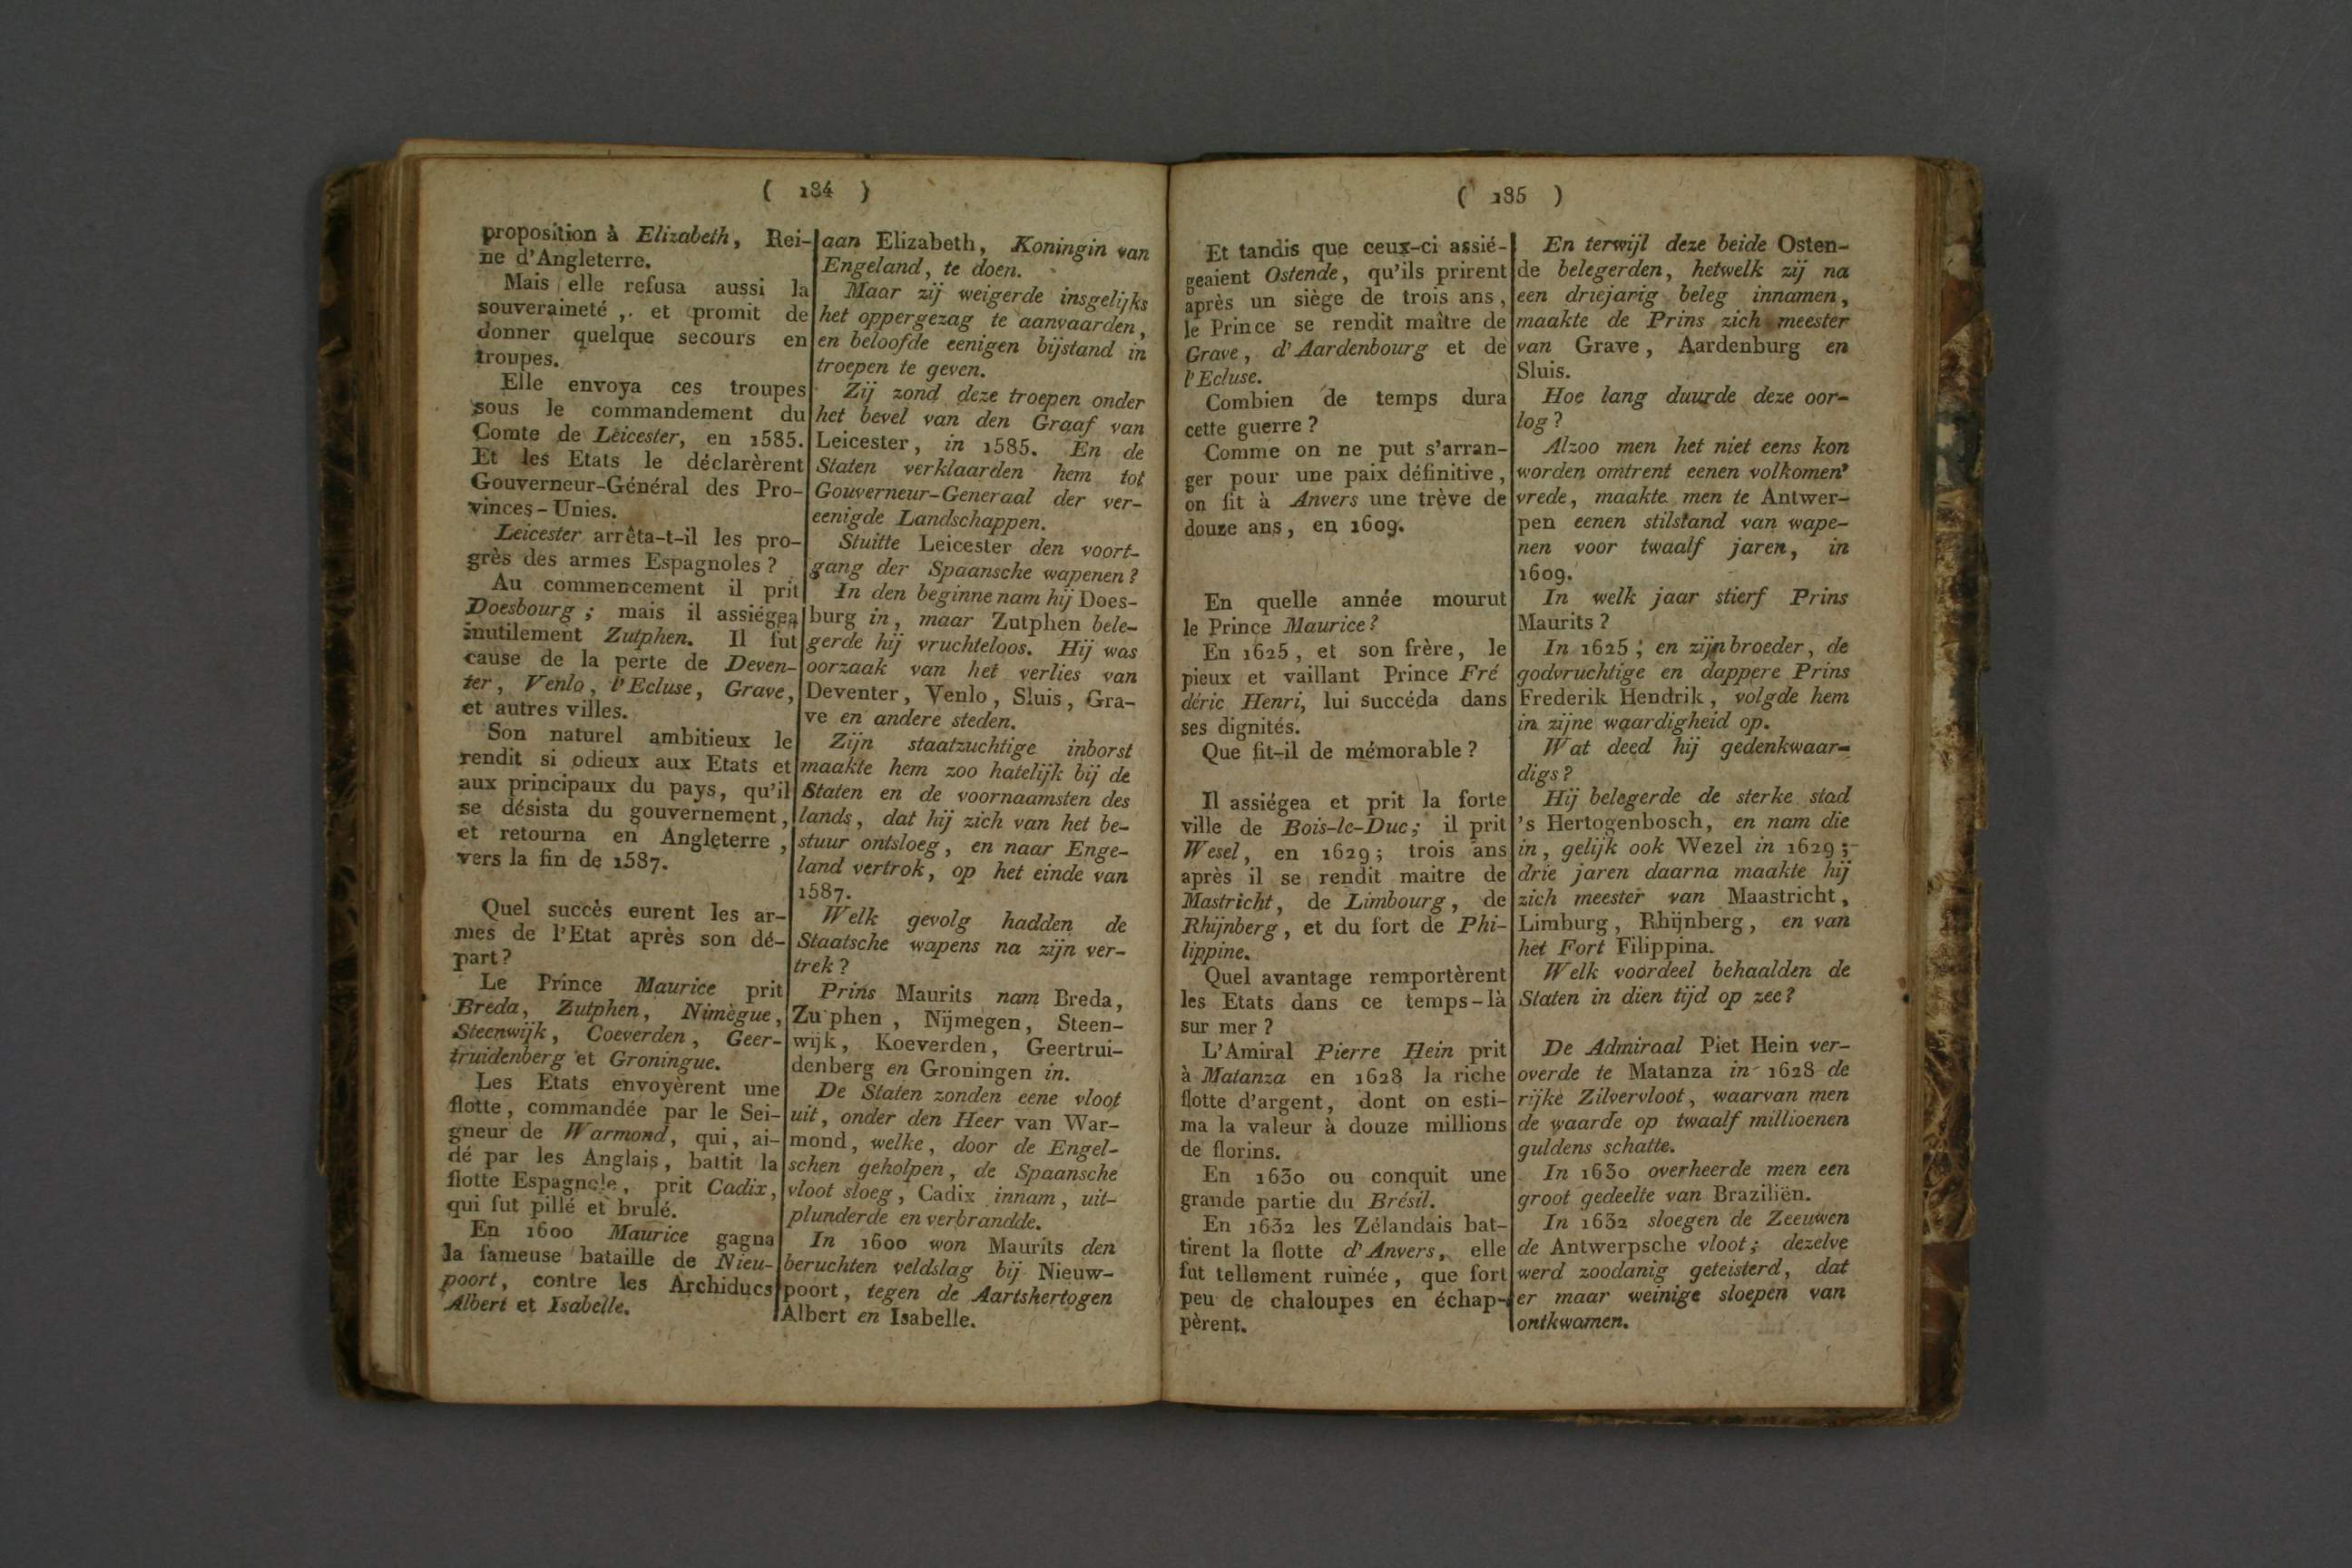 ( 184 )
proposition à Elizabeth, Rei-
ne d'Angleterre.
Mais elle refusa aussi la
souveraineté, et promit de
donner quelque secours en
troupes.
Elle envoya ces troupes
sous le commandement du
Comte de Leicester, en 1585.
Et les Etats le déclarèrent
Gouverneur-Général des Pro-
vinces-Unies.
Leicester arrêta-t-il les pro-
grès des armes Espagnoles ?
Au commencement il prit
Doesbourg ; mais il assiégea
inutilement Zutphen. Il fut
cause de la perte de Deven-
ter, Venlo, l'Ecluse, Grave,
et autres villes.
Son naturel ambitieux le
rendit si odieux aux Etats et
aux principaux du pays, qu'il
se désista du gouvernement,
et retourna en Angleterre,
vers la fin de 1587.
Quel succès eurent les ar-
mes de l'Etat après son dé-
part ?
Le Prince Maurice prit
Breda, Zutphen, Nimègue,
Steenwijk, Coeverden, Geer-
truidenberg et Groningue.
Les Etats envoyèrent une
flotte, commandée par le Sei-
gneur de Warmond, qui, ai-
dé par les Anglais, battit la
flotte Espagnole, prit Cadix,
qui fut pillé et brulé.
En 1600 Maurice gagna
la fameuse bataille de Nieu-
poort, contre les Archiducs
Albert et Isabelle.
aan Elizabeth, Koningin van
Engeland, te doen.
Maar zij weigerde insgelijks
het oppergezag te aanvaarden,
en beloofde eenigen bijstand in
troepen te geven.
Zij zond deze troepen onder
het bevel van den Graaf van
Leicester, in 1585. En de
Staten verklaarden hem tot
Gouverneur-Generaal der ver-
eenigde Landschappen.
Stuitte Leicester den voort-
gang der Spaansche wapenen ?
In den beginne nam hij Does-
burg in, maar Zutphen bele-
gerde hij vruchteloos. Hij was
oorzaak van het verlies van
Deventer, Venlo, Sluis, Gra-
ve en andere steden.
Zijn staatzuchtige inborst
maakte hem zoo hatelijk bij de
Staten en de voornaamsten des
lands, dat hij zich van het be-
stuur ontsloeg, en naar Enge-
land vertrok, op het einde van
1587.
Welk gevolg hadden de
Staatsche wapens na zijn ver-
trek ?
Prins Maurits nam Breda,
Zu phen, Nijmegen, Steen-
wijk, Koeverden, Geertrui-
denberg en Groningen in.
De Staten zonden eene vloot
uit, onder den Heer van War-
mond, welke, door de Engel-
schen geholpen, de Spaansche
vloot sloeg, Cadix innam, uit-
plunderde en verbrandde.
In 1600 won Maurits den
beruchten veldslag bij Nieuw-
poort, tegen de Aartshertogen
Albert en Isabelle.
( 185 )
Et tandis que ceux-ci assié-
geaient Ostende, qu'ils prirent
après un siège de trois ans,
le Prince se rendit maître de
Grave, d'Aardenbourg et de
l'Ecluse.
Combien de temps dura
cette guerre ?
Comme on ne put s'arran-
ger pour une paix définitive,
on fit à Anvers une trève de
douze ans, en 1609.
En quelle année mourut
le Prince Maurice ?
En 1625, et son frère, le
pieux et vaillant Prince Fré
déric Henri, lui succéda dans
ses dignités.
Que fit-il de mémorable ?
Il assiégea et prit la forte
ville de Bois-le-Duc; il prit
Wesel, en 1629; trois ans
après il se rendit maitre de
Mastricht, de Limbourg, de
Rhijnberg, et du fort de Phi-
lippine.
Quel avantage remportèrent
les Etats dans ce temps-là
sur mer ?
L'Amiral Pierre Hein prit
à Matanza en 1628 la riche
flotte d'argent, dont on esti-
ma la valeur à douze millions
de florins.
En 1630 ou conquit une
grande partie du Brésil.
En 1632 les Zélandais bat-
tirent la flotte d'Anvers, elle
fut tellement ruinée, que fort
peu de chaloupes en échap-
pèrent.
En terwijl deze beide Osten-
de belegerden, hetwelk zij na
een driejarig beleg innamen,
maakte de Prins zich meester
van Grave, Aardenburg en
Sluis.
Hoe lang duurde deze oor-
log ?
Alzoo men het niet eens kon
worden omtrent eenen volkomen'
vrede, maakte men te Antwer-
pen eenen stilstand van wape-
nen voor twaalf jaren, in
1609.
In welk jaar stierf Prins
Maurits ?
In 1625; en zijn broeder, de
godvruchtige en dappere Prins
Frederik Hendrik, volgde hem
in zijne waardigheid op.
Wat deed hij gedenkwaar-
digs ?
Hij belegerde de sterke stad
's Hertogenbosch, en nam die
in, gelijk ook Wezel in 1629;
drie jaren daarna maakte hij
zich meester van Maastricht,
Limburg, Rhijnberg, en van
het Fort Filippina.
Welk voordeel behaalden de
Staten in dien tijd op zee ?
De Admiraal Piet Hein ver-
overde te Matanza in 1628 de
rijke Zilvervloot, waarvan men
de waarde op twaalf millioenen
guldens schatte.
In 1630 overheerde men een
groot gedeelte van Braziliën.
In 1632 sloegen de Zeeuwen
de Antwerpsche vloot; dezelve
werd zoodanig geteisterd, dat
er maar weinige sloepen van
ontkwamen.